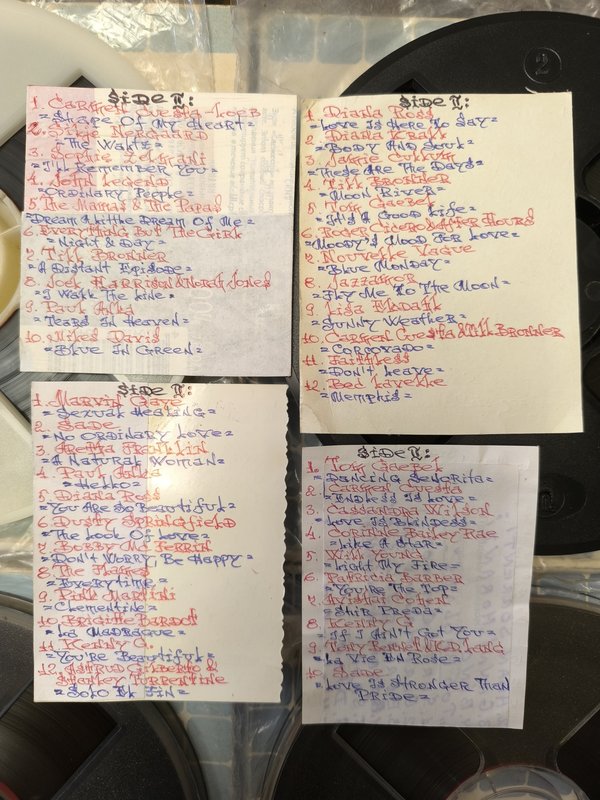 2
SiDE I:
1. CARMEN CUESTA-LOEB
=SHAPE OF MY HEART=
2. SILJE NERGAARD
=The Waltz=
3. Sophie Zelmani
=I'll Remember You=
4. John Legend
=Ordinary People=
5. The Mamas & The Papas
=Dream A Little Dream Of Me=
6. Everything But The Girl
=Night & Day=
7. Till Bronner
=A Distant Episode=
8. Joel Harrison & Norah Jones
=I Walk The Line=
9. Paul Anka
=Tears In Heaven=
10. Miles Davis
=Blue In Green=
SiDE I:
1. Diana Ross
=Love Is Here To Say=
2. Diana Krall
=Body And Soul=
3. Jamie Cullum
=These Are The Days=
4. Till Bronner
=Moon River=
5. Tom Gaebel
=It's A Good Life=
6. Roger Cicero & After Hours
=Moody's Mood For Love=
7. Nouvelle Vague
=Blue Monday=
8. Jazzamor
=Fly Me To The Moon=
9. Lisa
=Sunny Weather=
10. Carmen Cuesta & Till Bronner
=Corcovado=
11. Faithless
=Don't Leave=
12. Bed Lavelle
=Memphis=
SiDE I:
1. Marvin Gaye
=Sexual Healing=
2. Sade
=No Ordinary Love=
3. Aretha Franklin
=A Natural Woman=
4. Paul Anka
=Hello=
5. Diana Ross
=You Are So Beautiful=
6. Dusty Springfield
=The Look Of Love=
7. Bobby Mc Ferrin
=Don't Worry, Be Happy=
8. The Flames
=Everytime=
9. Pink Martini
=Clementine=
10. Brigitte Bardot
=La Madrague=
11. Kenny G.
=You're Beautiful=
12. Astrud Gilberto &
Stanley Turrentine
=Solo El Fin=
SIDE I:
1. Tom Gaebel
=Dancing Senorita=
2. Carmen Cuesta
=Endless Is Love=
3. Cassandra Wilson
=Love Is Blindness=
4. Corinne Bailey Rae
=Like A Star=
5. Will Young
=Light My Fire=
6. Patricia Barber
=You're The Top=
7. Avishai Cohen
=Shir Preda=
8. Kenny G
=If I Ain't Got You=
9. Tony Bennet N K.D. Lang
=La Vie En Rose=
10. Sade
=Love Is Stronger Than
Pride=